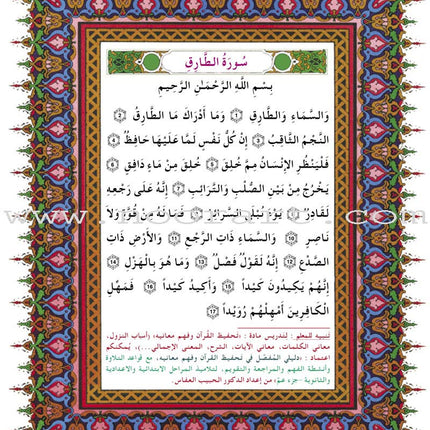 سُورَةُ الطَّارِقِ
بِسْمِ اللَّهِ الرَّحْمَٰنِ الرَّحِيمِ
وَالسَّمَاءِ وَالطَّارِقِ ١ وَمَا أَدْرَاكَ مَا الطَّارِقُ ٢
النَّجْمُ الثَّاقِبُ ٣ إِنْ كُلُّ نَفْسٍ لَمَّا عَلَيْهَا حَافِظٌ ٤
فَلْيَنْظُرِ الْإِنْسَانُ مِمَّ خُلِقَ ٥ خُلِقَ مِنْ مَاءٍ دَافِقٍ ٦
يَخْرُجُ مِنْ بَيْنِ الصُّلْبِ وَالتَّرَائِبِ ٧ إِنَّهُ عَلَى رَجْعِهِ
لَقَادِرٌ ٨ يَوْمَ تُبْلَى السَّرَائِرُ ٩ فَمَا لَهُ مِنْ قُوَّةٍ وَلَا
نَاصِرٍ ١٠ وَالسَّمَاءِ ذَاتِ الرَّجْعِ ١١ وَالْأَرْضِ ذَاتِ
الصَّدْعِ ١٢ إِنَّهُ لَقَوْلٌ فَصْلٌ ١٣ وَمَا هُوَ بِالْهَزْلِ ١٤
إِنَّهُمْ يَكِيدُونَ كَيْداً ١٥ وَأَكِيدُ كَيْداً ١٦ فَمَهِّلِ
الْكَافِرِينَ أَمْهِلْهُمْ رُوَيْداً ١٧
تنبيه للمعلم : لتدريس مادة : «تحفيظ القرآن وفهم معانيه» (أسباب النزول،
معاني الكلمات، معاني الآيات، الشرح، المعنى الإجمالي...)، يُمكنكم
اعتماد : «دليلي المُفضّل في تحفيظ القرآن وفهم معانيه، مع قواعد التلاوة
وأنشطة الفهم والمراجعة والتقويم، لتلاميذ المراحل الابتدائية والاعدادية
والثانوية -جزء عمّ» من إعداد الدكتور الحبيب العفاس.